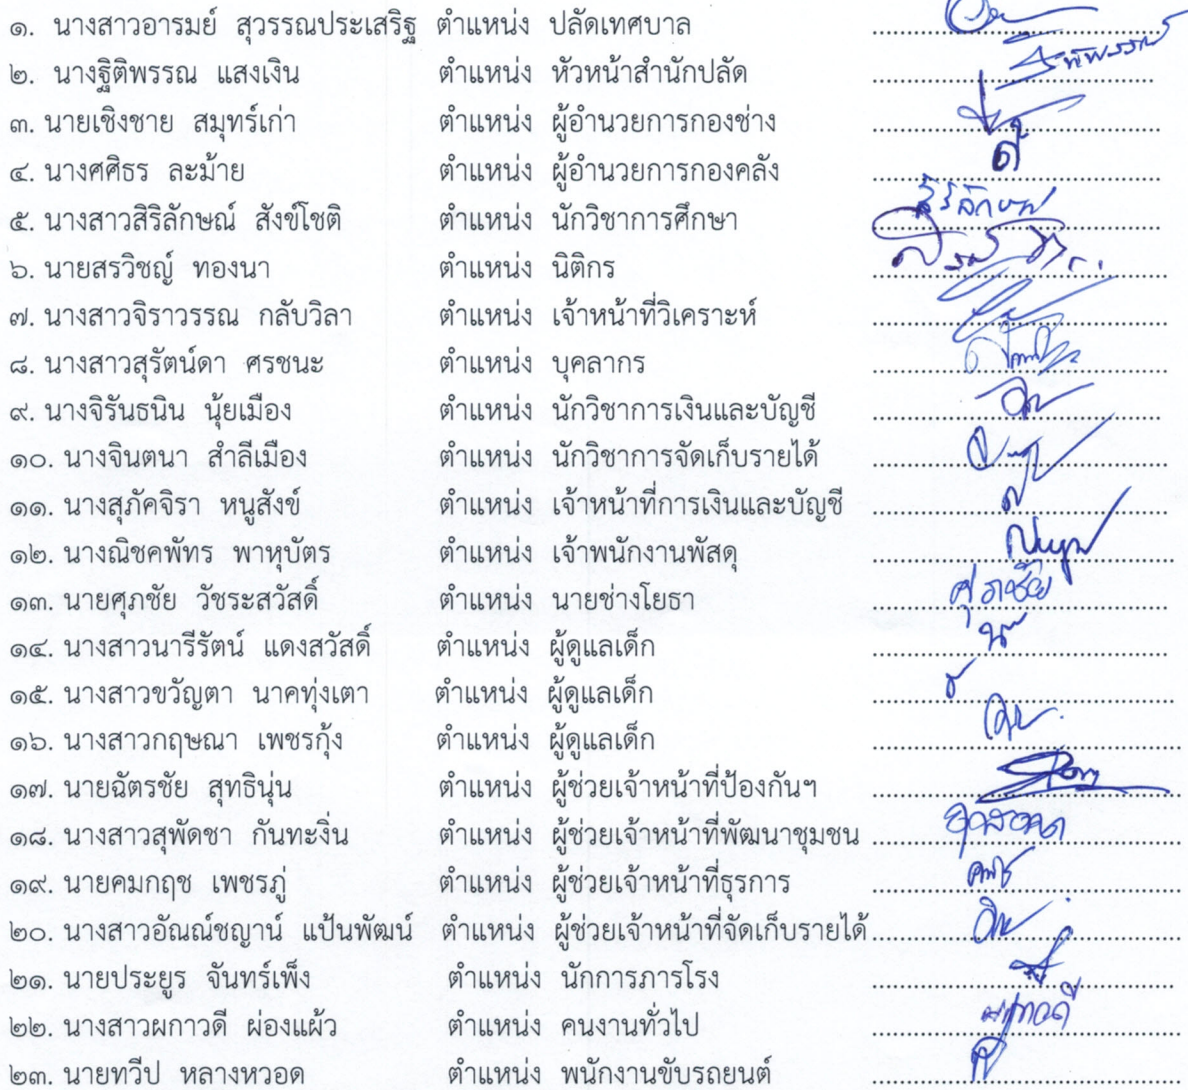 ๑. นางสาวอารมย์ สุวรรณประเสริฐ ตำแหน่ง ปลัดเทศบาล
๒. นางฐิติพรรณ แสงเงิน ตำแหน่ง หัวหน้าสำนักปลัด
๓. นายเชิงชาย สมุทร์เก่า ตำแหน่ง ผู้อำนวยการกองช่าง
๔. นางศศิธร ละม้าย ตำแหน่ง ผู้อำนวยการกองคลัง
๕. นางสาวสิริลักษณ์ สังข์โชติ ตำแหน่ง นักวิชาการศึกษา สิริลักษณ์
๖. นายสรวิชญ์ ทองนา ตำแหน่ง นิติกร
๗. นางสาวจิราวรรณ กลับวิลา ตำแหน่ง เจ้าหน้าที่วิเคราะห์
๘. นางสาวสุรัตน์ดา ศรชนะ ตำแหน่ง บุคลากร
๙. นางจิรันธนิน นุ้ยเมือง ตำแหน่ง นักวิชาการเงินและบัญชี
๑๐. นางจินตนา สำลีเมือง ตำแหน่ง นักวิชาการจัดเก็บรายได้
๑๑. นางสุภัคจิรา หนูสังข์ ตำแหน่ง เจ้าหน้าที่การเงินและบัญชี
๑๒. นางณิชคพัทร พาหุบัตร ตำแหน่ง เจ้าพนักงานพัสดุ
๑๓. นายศุภชัย วัชระสวัสดิ์ ตำแหน่ง นายช่างโยธา ศุภชัย
๑๔. นางสาวนารีรัตน์ แดงสวัสดิ์ ตำแหน่ง ผู้ดูแลเด็ก
๑๕. นางสาวขวัญตา นาคทุ่งเตา ตำแหน่ง ผู้ดูแลเด็ก
๑๖. นางสาวกฤษณา เพชรกุ้ง ตำแหน่ง ผู้ดูแลเด็ก
๑๗. นายฉัตรชัย สุทธินุ่น ตำแหน่ง ผู้ช่วยเจ้าหน้าที่ป้องกันฯ
๑๘. นางสาวสุพัดชา กันทะงิ่น ตำแหน่ง ผู้ช่วยเจ้าหน้าที่พัฒนาชุมชน
๑๙. นายคมกฤช เพชรภู่ ตำแหน่ง ผู้ช่วยเจ้าหน้าที่ธุรการ
๒๐. นางสาวอัณณ์ชญาน์ แป้นพัฒน์ ตำแหน่ง ผู้ช่วยเจ้าหน้าที่จัดเก็บรายได้
๒๑. นายประยูร จันทร์เพ็ง ตำแหน่ง นักการภารโรง
๒๒. นางสาวผกาวดี ผ่องแผ้ว ตำแหน่ง คนงานทั่วไป ผกาวดี
๒๓. นายทวีป หลางหวอด ตำแหน่ง พนักงานขับรถยนต์